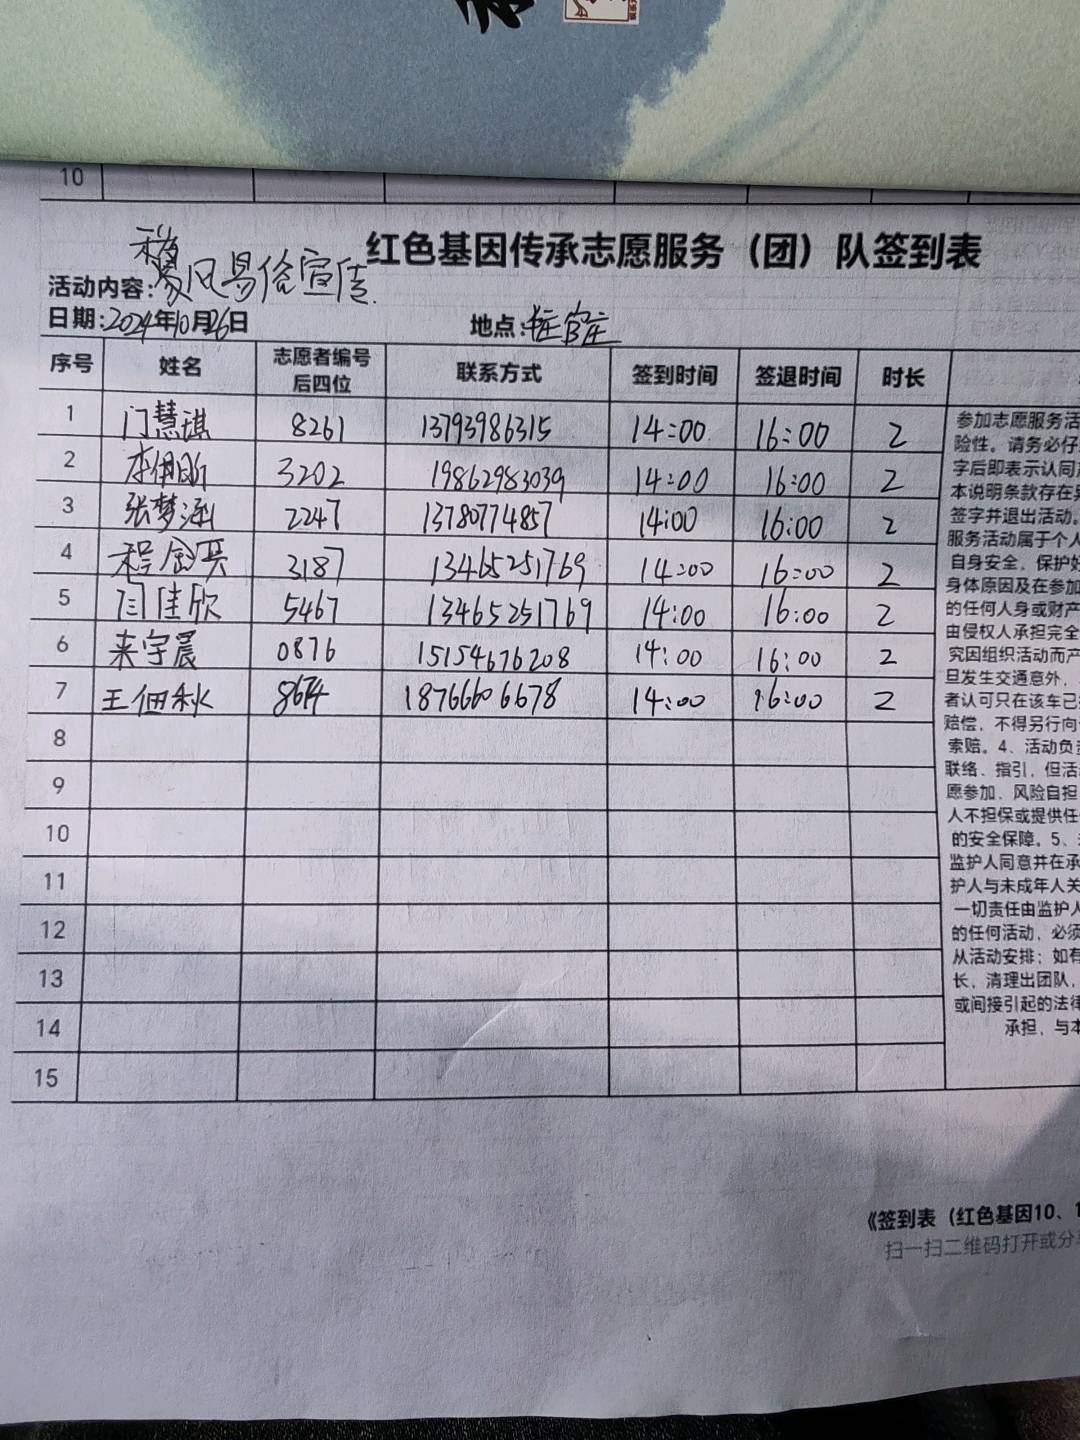 10
红色基因传承志愿服务（团）队签到表
活动内容：移风易俗宣传
日期：2024年10月26日 地点：官庄
序号 姓名 志愿者编号后四位 联系方式 签到时间 签退时间 时长
1 门慧琪 8261 13793986315 14:00 16:00 2
2 3202 19862983039 14:00 16:00 2
3 张梦涵 2247 13780774857 14:00 16:00 2
4 程 3187 13465251769 14:00 16:00 2
5 闫佳欣 5467 13465251769 14:00 16:00 2
6 来宇晨 0876 15154676208 14:00 16:00 2
7 王佃秋 18766606678 14:00 16:00 2
8
9
10
11
12
13
14
15
参加志愿服务活
险性。请务必仔
字后即表示认同
本说明条款存在
签字并退出活动。
服务活动属于个人
自身安全，保护好
身体原因及在参加
的任何人身或财产
由侵权人承担完全
究因组织活动而产
旦发生交通意外，
者认可只在该车已
赔偿，不得另行向
索赔。4、活动负责
联络、指引，但活
愿参加、风险自担
人不担保或提供任
的安全保障。5、
监护人同意并在承
护人与未成年人关
一切责任由监护人
的任何活动，必须
从活动安排；如有
长，清理出团队，
或间接引起的法律
承担，与本
《签到表（红色基因10、1
扫一扫二维码打开或分享